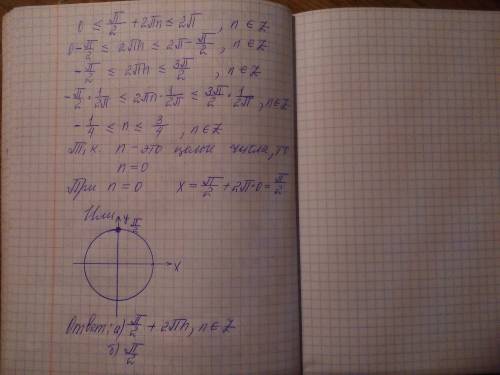 0 ≤ π/2 + 2πn ≤ 2π, n ∈ Z
0 - π/2 ≤ 2πn ≤ 2π - π/2, n ∈ Z
-π/2 ≤ 2πn ≤ 3π/2, n ∈ Z
-π/2 · 1/2π ≤ 2πn · 1/2π ≤ 3π/2 · 1/2π, n ∈ Z
-1/4 ≤ n ≤ 3/4, n ∈ Z
Т.к. n - это целые числа, то
n = 0
При n = 0 x = π/2 + 2π·0 = π/2
Или
y π/2
x
Ответ: а) π/2 + 2πn, n ∈ Z
б) π/2